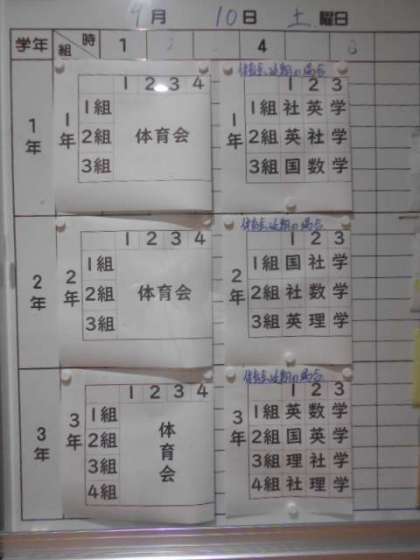 9月 10日 土 曜日
学年 組 時 1 2 4
1年 1年 1 2 3 4
1組
2組 体育会
3組
1年 1 2 3
1組 社 英 学
2組 英 社 学
3組 国 数 学
2年 2年 1 2 3 4
1組
2組 体育会
3組
2年 1 2 3
1組 国 社 学
2組 社 数 学
3組 英 理 学
3年 3年 1 2 3 4
1組
2組
3組
4組
体育会
3年 1 2 3
1組 英 数 学
2組 国 英 学
3組 理 社 学
4組 社 理 学